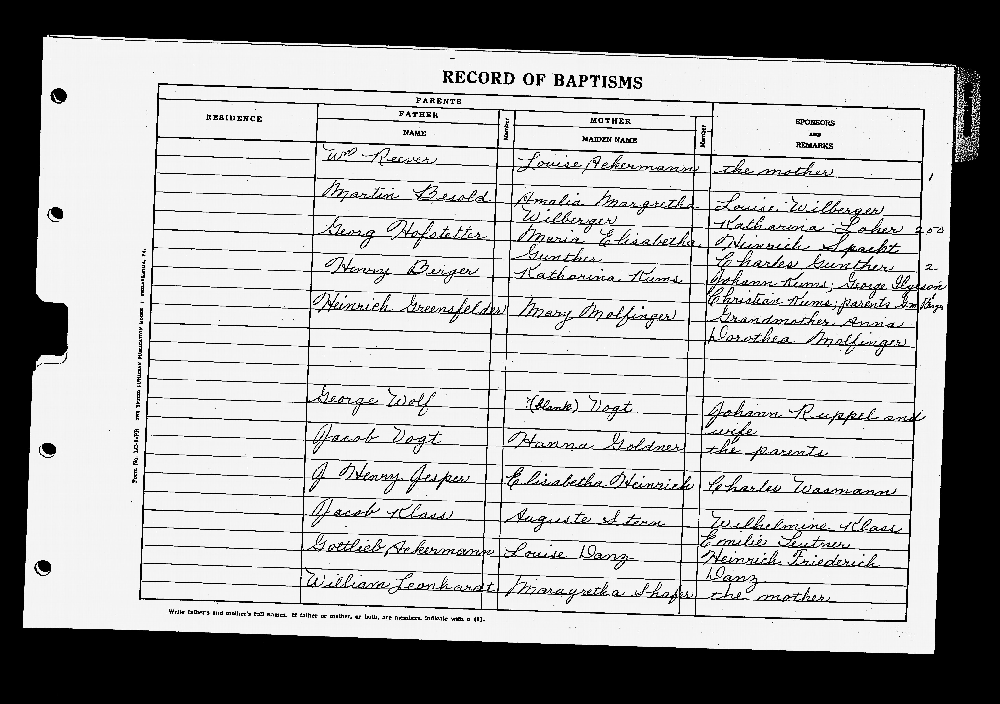 RECORD OF BAPTISMS
PARENTS
RESIDENCE
FATHER
Member
MOTHER
Member
SPONSORS
AND
REMARKS
NAME
MAIDEN NAME
Wm Reever Louise Ackermann the mother 1
Martin Besold Amalia Margretha Louise Wilberger
Wilberger Katharina Loher 2.00
Georg Hofstetter Maria Elisabetha Heinrich Spacht
Gunther Charles Gunther 2
Henry Berger Katharina Kums Johann Kums; George
Christian Kums; parents
Heinrich Greensfelder Mary Molfinger Grandmother Anna
Dorothea Molfinger
George Wolf (blank) Vogt Johann Ruppel and
wife
Jacob Vogt Hanna Goldner the parents
J Henry Jesper Elisabetha Heinrich Charles Wasmann
Jacob Klass Auguste Stern Wilhelmine Klass
Emilie Leutner
Gottlieb Ackermann Louise Danz Heinrich Friederich
Danz
William Leonhardt Margretha Shafer the mother
Write father's and mother's full names. If father or mother, or both, are members, indicate with a (X).